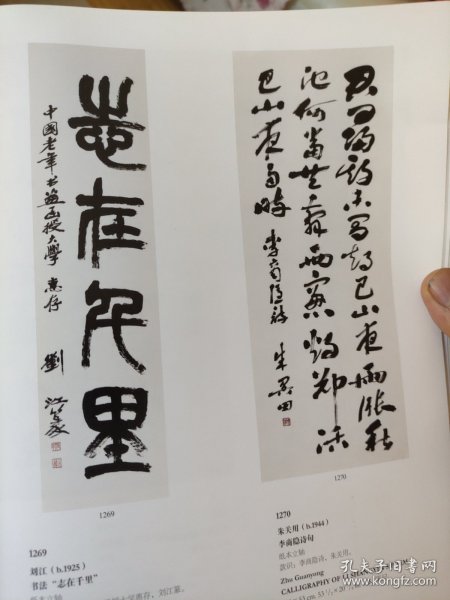 志在千里
中國老年书画函授大學 惠存 劉江篆
君問歸期未有期巴山夜雨漲秋
池何當共翦西窗燭却話
巴山夜雨時 李商隱詩 朱關田
1269
1270
1269
刘江（b.1925）
书法“志在千里”
纸本立轴
大学惠存，刘江篆。
1270
朱关用（b.1944）
李商隐诗句
纸本立轴
款识：李商隐诗，朱关用。
Zhu Guanyong
CALLIGRAPHY OF LI
孔夫子旧书网